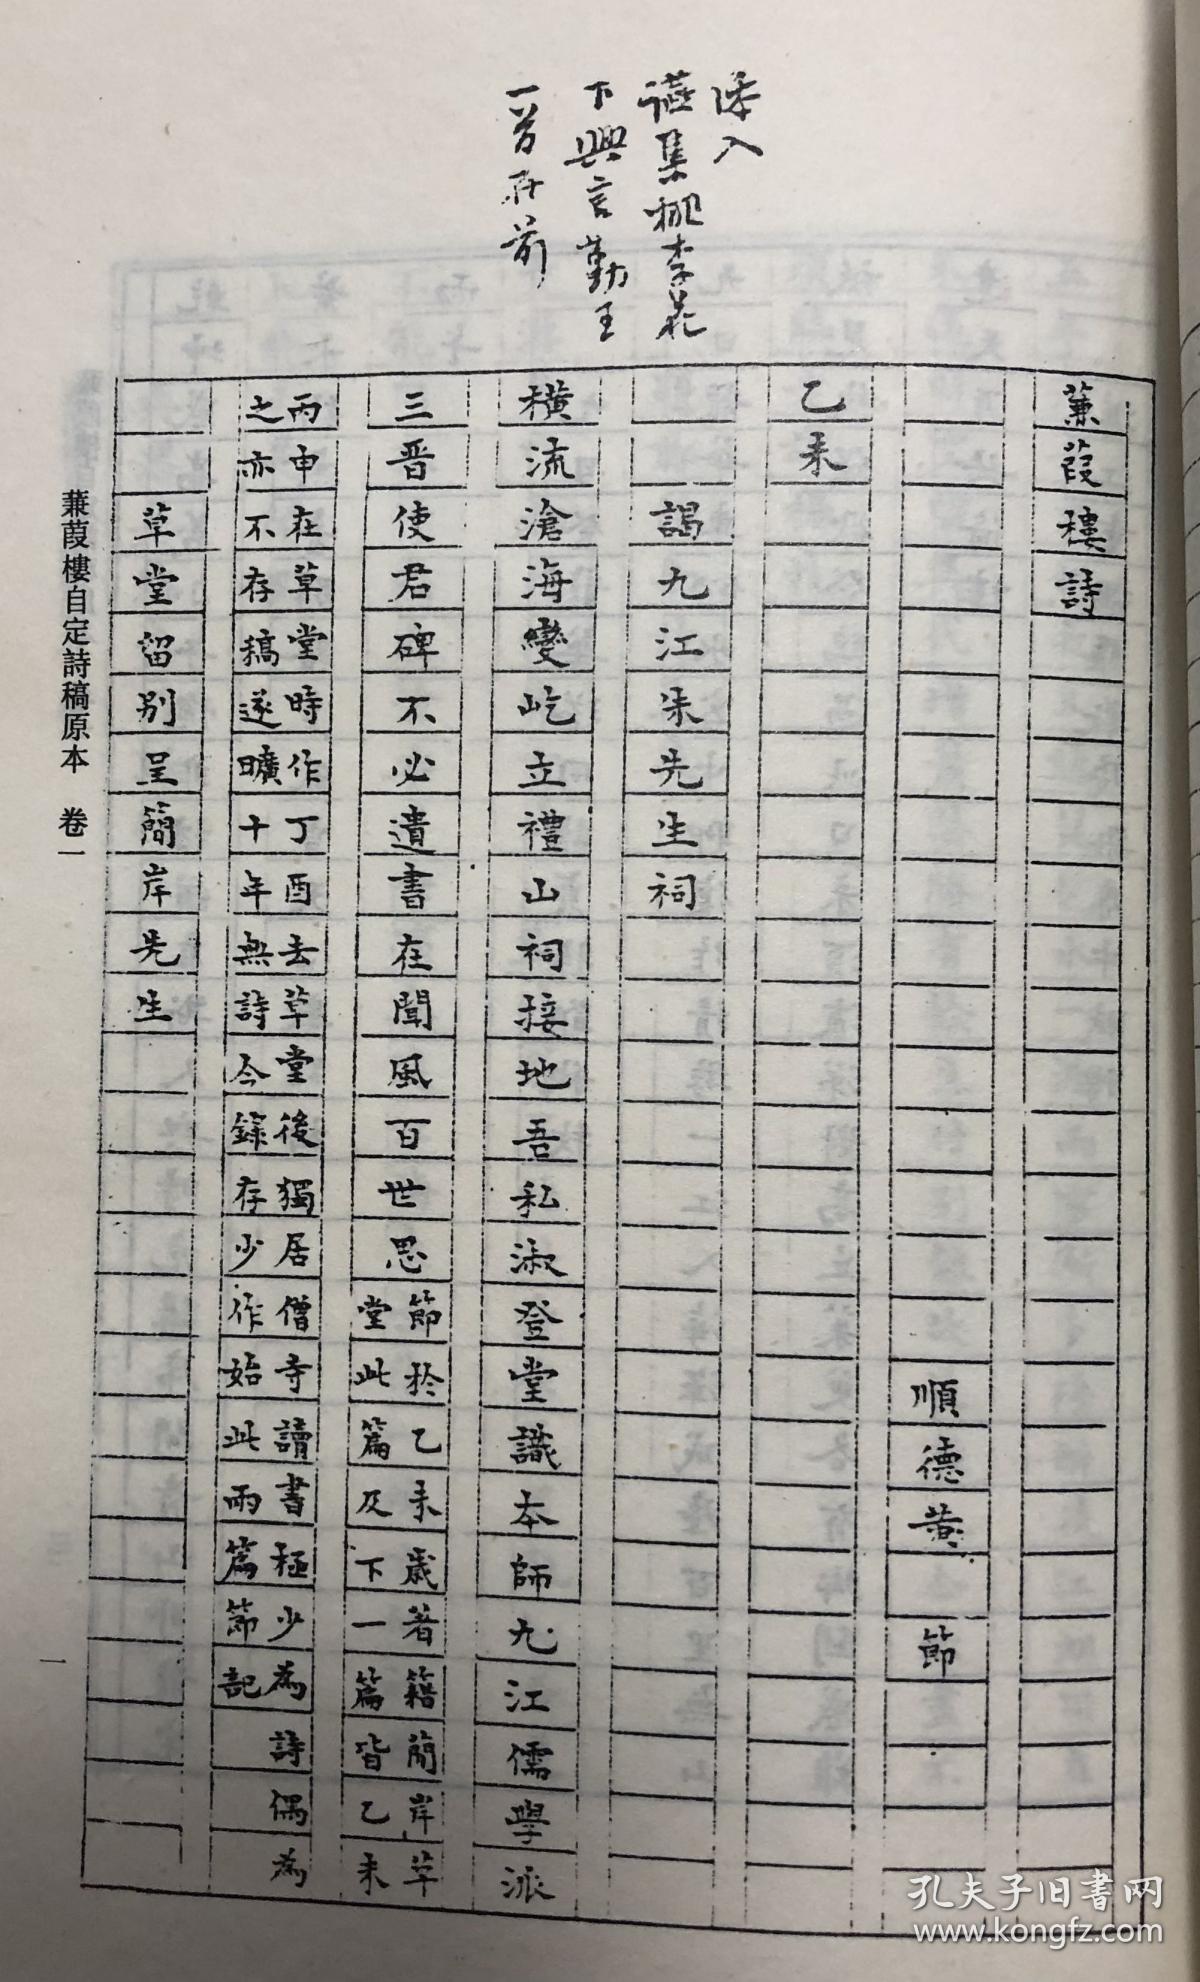 添入
讌集桃李花
下興言勤王
一首在前
蒹葭樓詩
順德黃節
乙未
謁九江朱先生祠
橫流滄海變屹立禮山祠接地吾私淑登堂識本師九江儒學派
三晋使君碑不必遺書在聞風百世思
節於乙未歲著籍簡岸草
堂此篇及下一篇皆乙未
丙申在草堂時作丁酉去草堂後獨居僧寺讀書極少為詩偶為
之亦不存稿遂曠十年無詩今錄存少作始此兩篇節記
草堂留別呈簡岸先生
蒹葭樓自定詩稿原本 卷一
一
孔夫子旧书网
www.kongfz.com